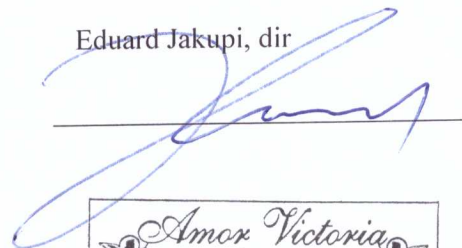 Eduard Jakupi, dir
Amor Victoria